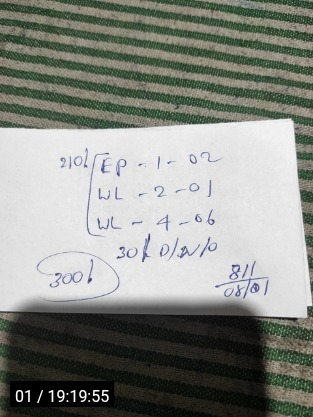 210/ EP - 1 - 02
WL - 2 - 01
WL - 4 - 06
30/ D/N/O
300/
811
08/01
01 / 19:19:55